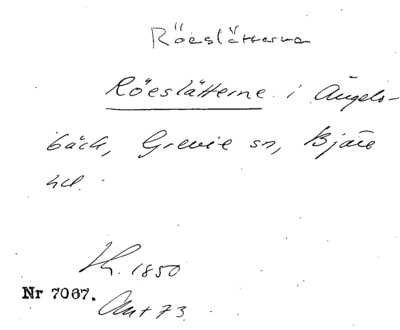 Röeslätterna
Röeslätterne i Ängels-
bäck, Grevie sn, Bjäre
hd.
Lk. 1850
Nr 7067.
Ant 73